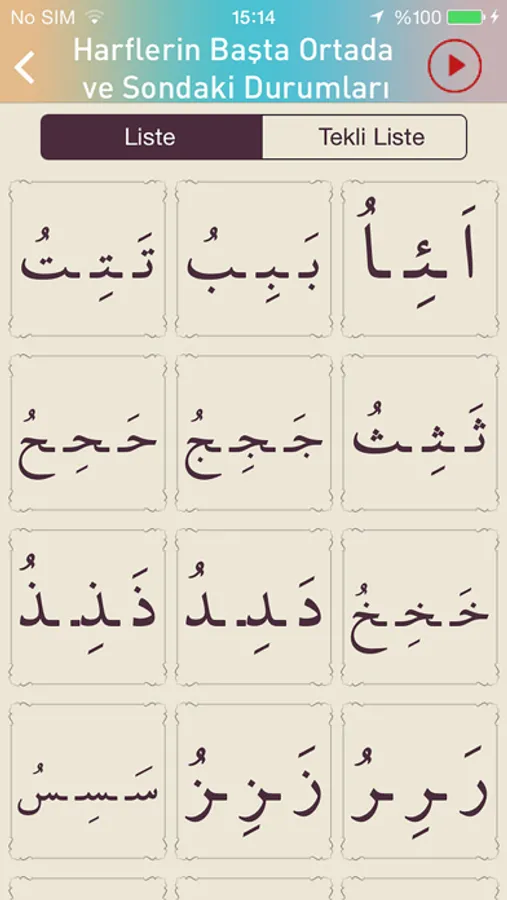 No SIM 15:14 %100
Harflerin Başta Ortada
ve Sondaki Durumları
Liste Tekli Liste
اَ ـئِـ ـاُ
بَـ ـبِـ ـبُ
تَـ ـتِـ ـتُ
ثَـ ـثِـ ـثُ
جَـ ـجِـ ـجُ
حَـ ـحِـ ـحُ
خَـ ـخِـ ـخُ
دَ ـدِ ـدُ
ذَ ـذِ ـذُ
رَ ـرِ ـرُ
زَ ـزِ ـزُ
سَـ ـسِـ ـسُ